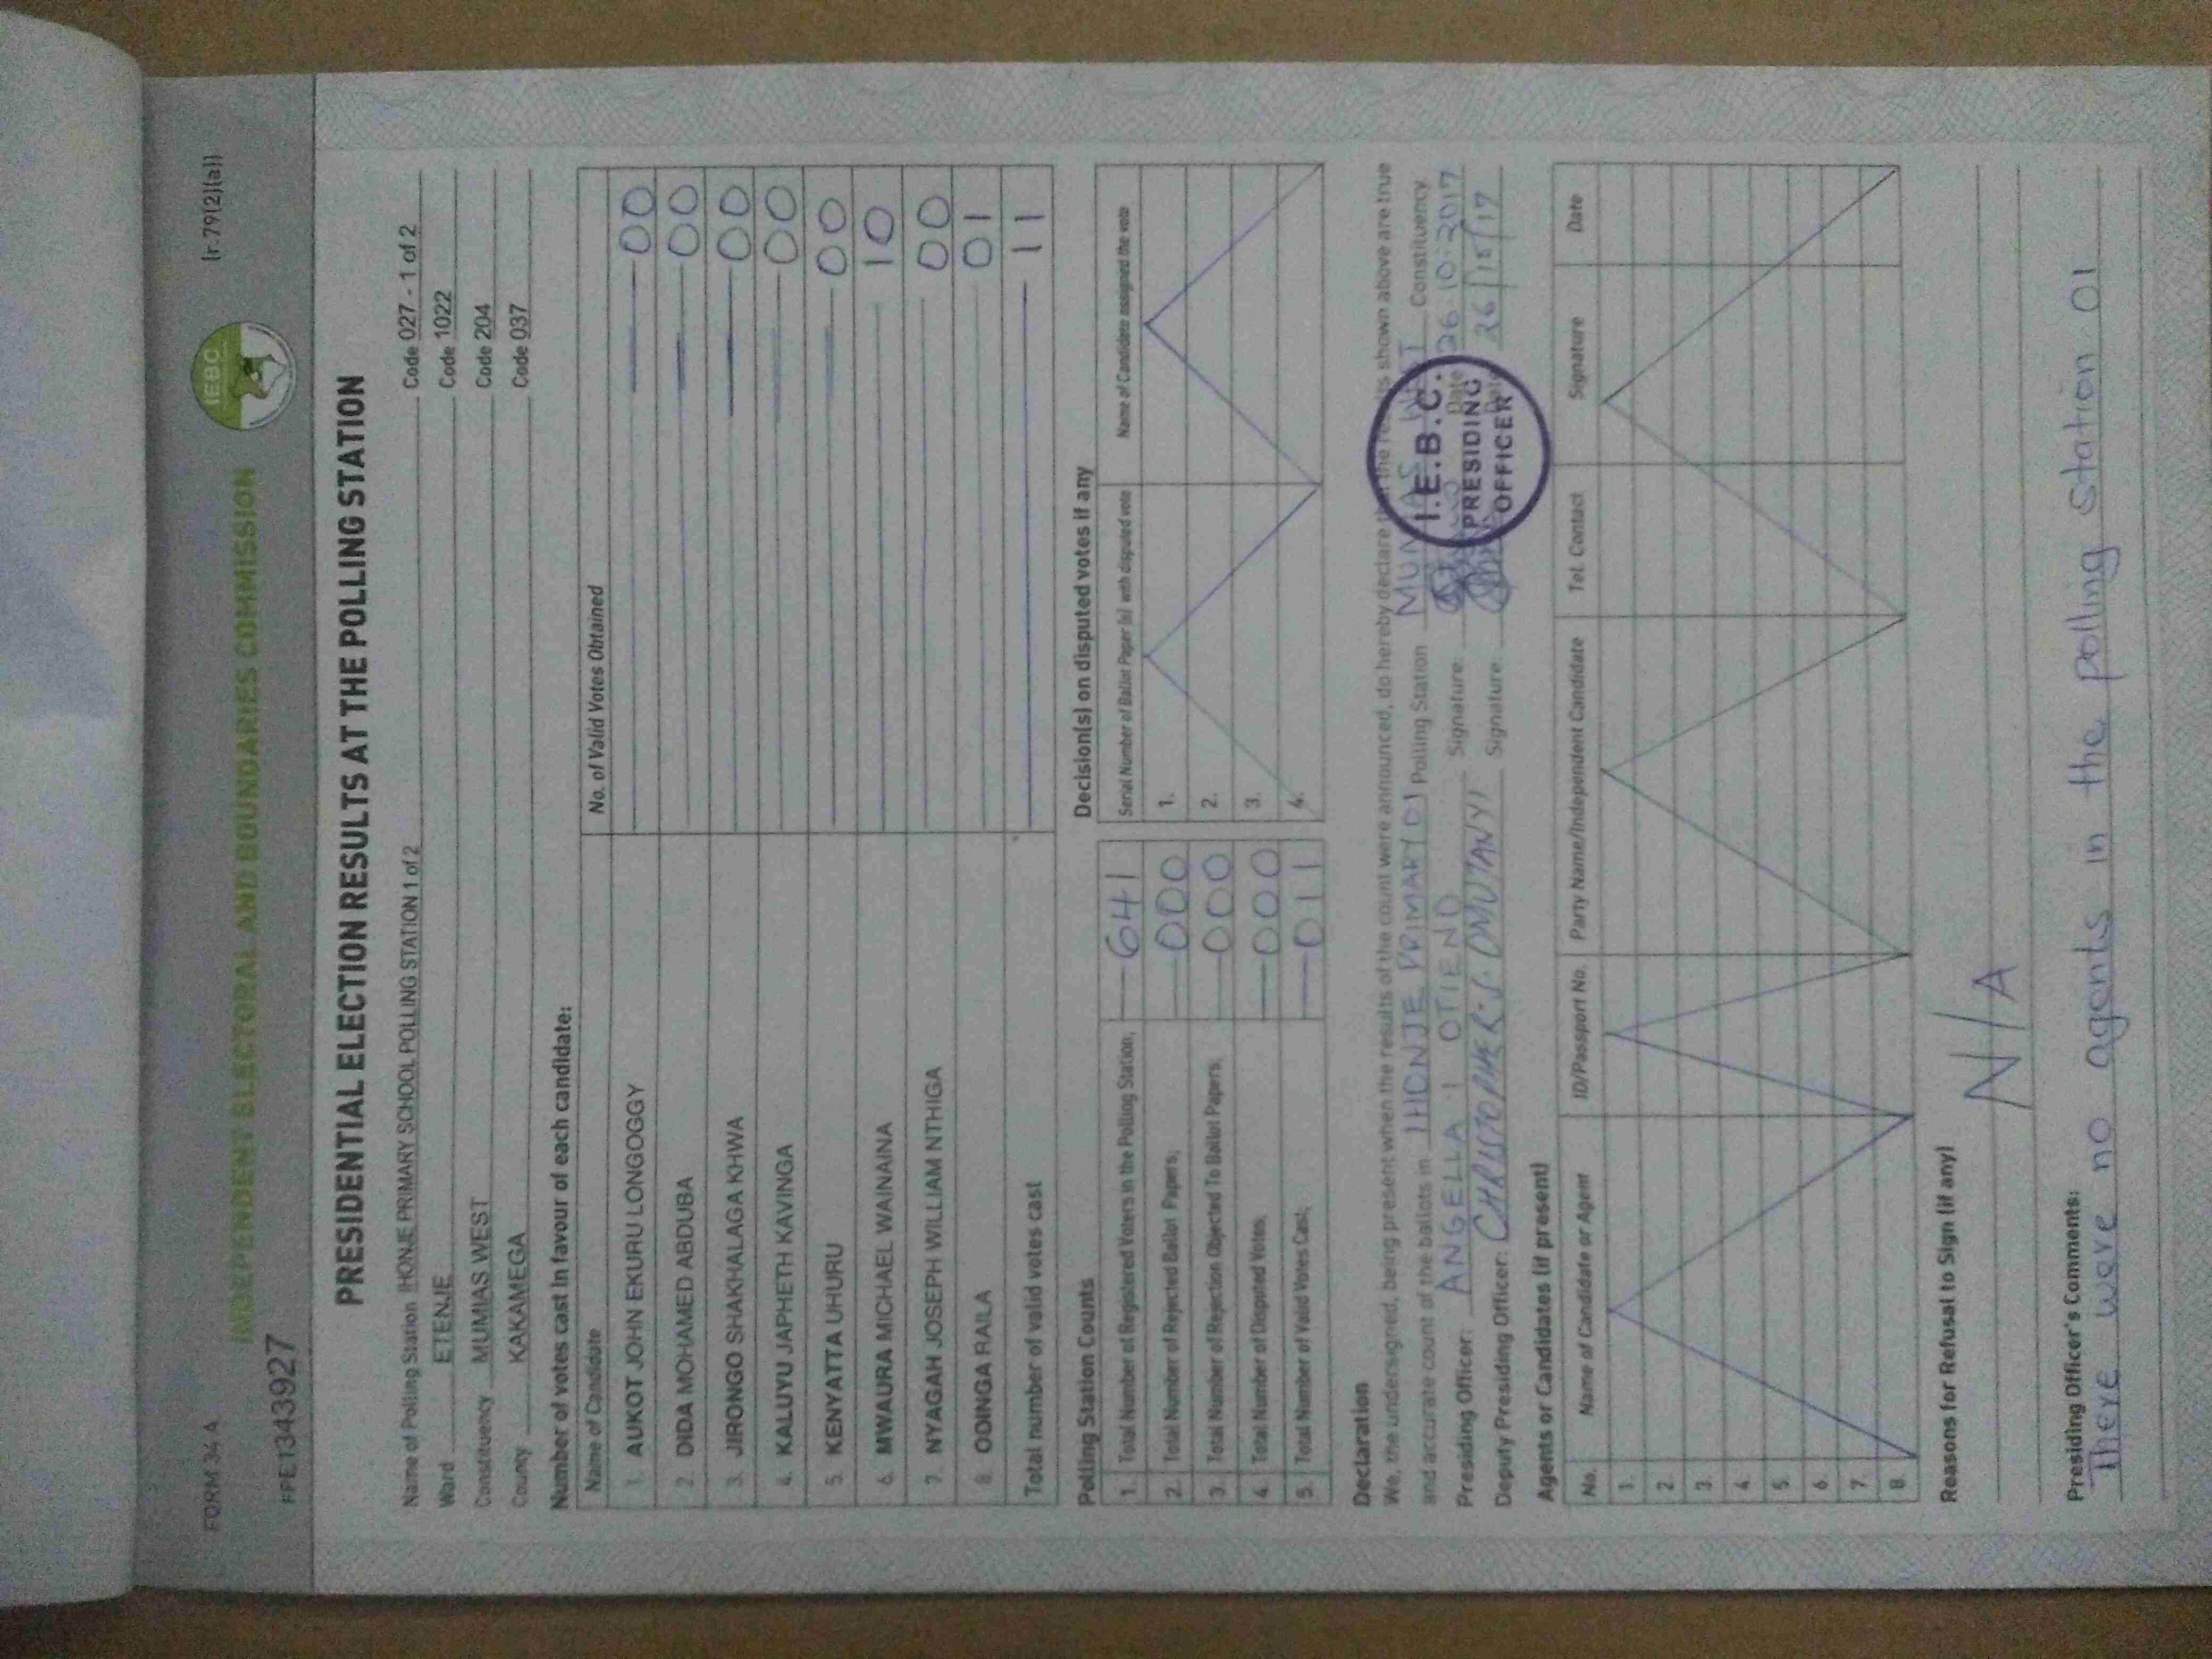 FORM 34 A
(r.79(2)(a))
IEBC
INDEPENDENT ELECTORAL AND BOUNDARIES COMMISSION
PRESIDENTIAL ELECTION RESULTS AT THE POLLING STATION
Name of Polling Station IHONJE PRIMARY SCHOOL POLLING STATION 1 of 2 Code 027 - 1 of 2
Ward ETENJE Code 1022
Constituency MUMIAS WEST Code 204
County KAKAMEGA Code 037
Number of votes cast in favour of each candidate:
Name of Candidate No. of Valid Votes Obtained
1. AUKOT JOHN EKURU LONGOGGY 00
2. DIDA MOHAMED ABDUBA 00
3. JIRONGO SHAKHALAGA KHWA 00
4. KALUYU JAPHETH KAVINGA 00
5. KENYATTA UHURU 00
6. MWAURA MICHAEL WAINAINA 10
7. NYAGAH JOSEPH WILLIAM NTHIGA 00
8. ODINGA RAILA 01
Total number of valid votes cast 11
Polling Station Counts
1. Total Number of Registered Voters in the Polling Station, 641
2. Total Number of Rejected Ballot Papers, 000
3. Total Number of Rejection Objected To Ballot Papers, 000
4. Total Number of Disputed Votes, 000
5. Total Number of Valid Votes Cast, 011
Decision(s) on disputed votes if any
Serial Number of Ballot Paper (s) with disputed vote Name of Candidate assigned the vote
1.
2.
3.
4.
Declaration
We, the undersigned, being present when the results of the count were announced, do hereby declare that the results shown above are true
and accurate count of the ballots in IHONJE PRIMARY 01 Polling Station MUMIAS WEST Constituency.
Presiding Officer: ANGELLA I OTIENO Signature: Date 26.10.2017
Deputy Presiding Officer: CHRISTOPHER.S. OMUTANYI Signature: Date 26/10/17
I.E.B.C.
PRESIDING
OFFICER
Agents or Candidates (if present)
No. Name of Candidate or Agent ID/Passport No. Party Name/Independent Candidate Tel. Contact Signature Date
1.
2.
3.
4.
5.
6.
7.
8.
Reasons for Refusal to Sign (if any)
N/A
Presiding Officer's Comments:
There were no agents in the polling station 01